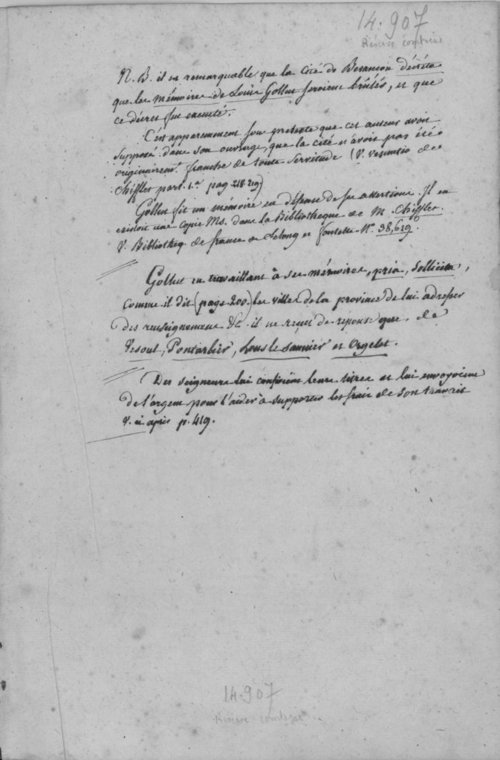 14.907
Réserve comtoise
N. B. il est remarquable que la Cité de Besançon décréta
que les mémoires de Louis Gollut seroient brûlés, et que
ce décret fut executé.
C'est apparemment sous pretexte que cet auteur avoit
supposé dans son ouvrage, que la cité n'avoit pas été
originairemt. franche de toute servitude (V. Vesuntio de
Chifflet part. 1.re pag 218. 219)
Gollut fit un mémoire en défense de ses assertions. Il en
existoit une copie Ms. dans la Bibliotheque de M. Chifflet.
V. Bibliotheq de france de Lelong et fontette No. 38,619.
Gollut en travaillant à ses mémoires, pria, sollicita,
comme il dit (page 200) les villes de la province de lui adresser
des renseignemens &c. il ne reçut de reponse que de
Vesoul, Pontarlier, Lons le saunier et Orgelet.
Des seigneurs lui confièrent leurs titres et lui envoyèrent
de l'argent pour l'aider à supporter les frais de son travail
V. ci après p. 419.
14.907
Réserve comtoise